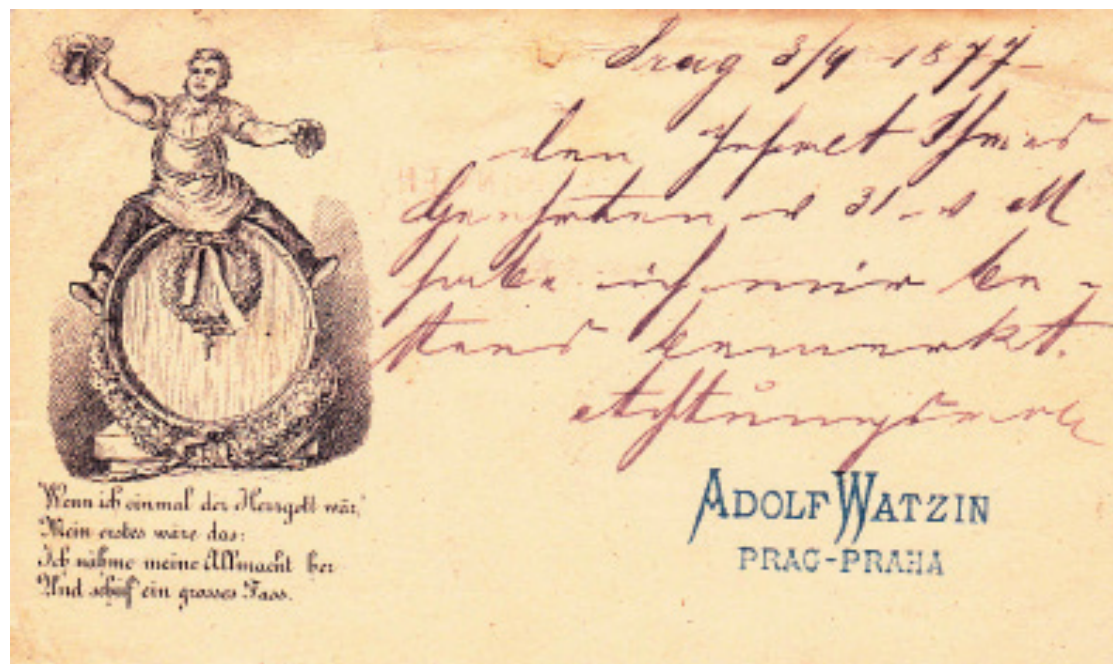 Prag 3/9 1877-
den Inhalt Ihres
Geehrten v 31 v M
habe ich mir be-
stens bemerkt.
Achtungsvoll
ADOLF WATZIN
PRAG-PRAHA
Wenn ich einmal der Herrgott wär,'
Mein erstes wäre das:
Ich nähme meine Allmacht her
Und schüf' ein grosses Fass.